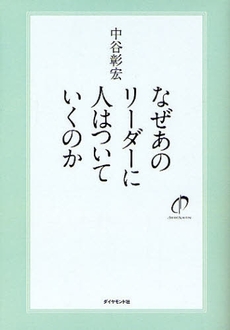 中谷彰宏
なぜあの
リーダーに
人はついて
いくのか
ダイヤモンド社